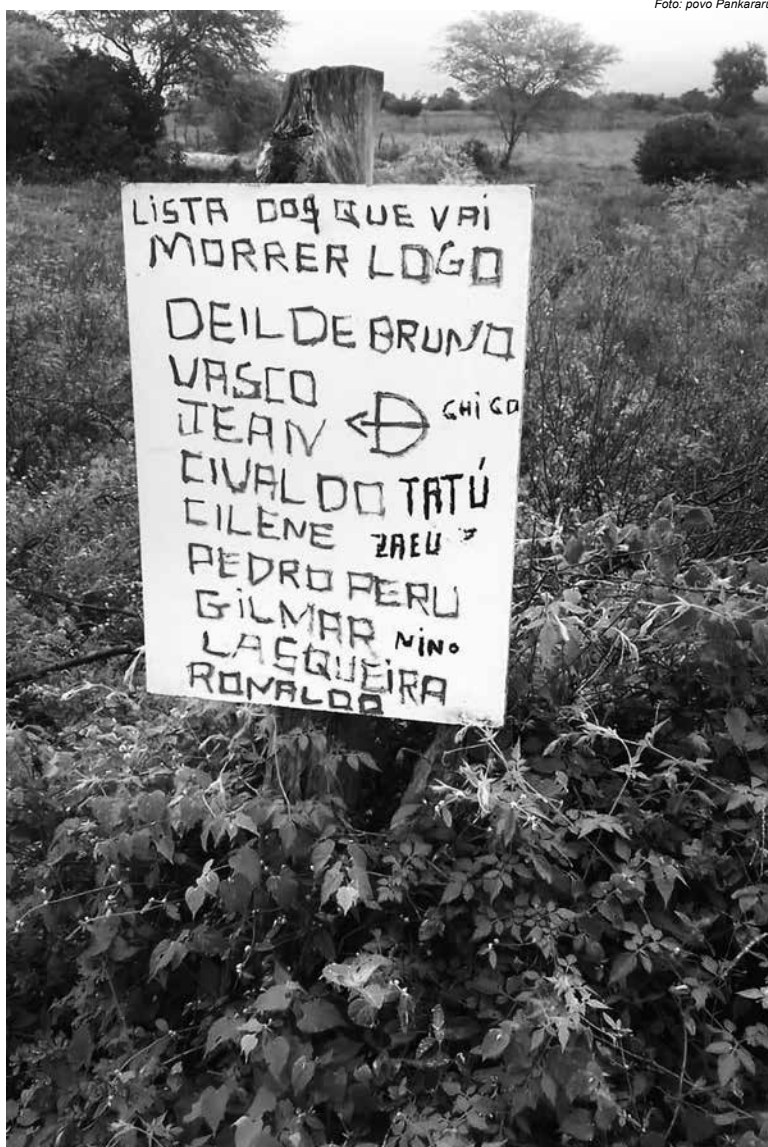 Foto: povo Pankararu
LISTA DOS QUE VAI
MORRER LOGO
DEILDE BRUNO
VASCO
JEAN CHIGO
CIVALDO TATÚ
CILENE ZAEU
PEDRO PERU
GILMAR NINO
LASQUEIRA
RONALDO